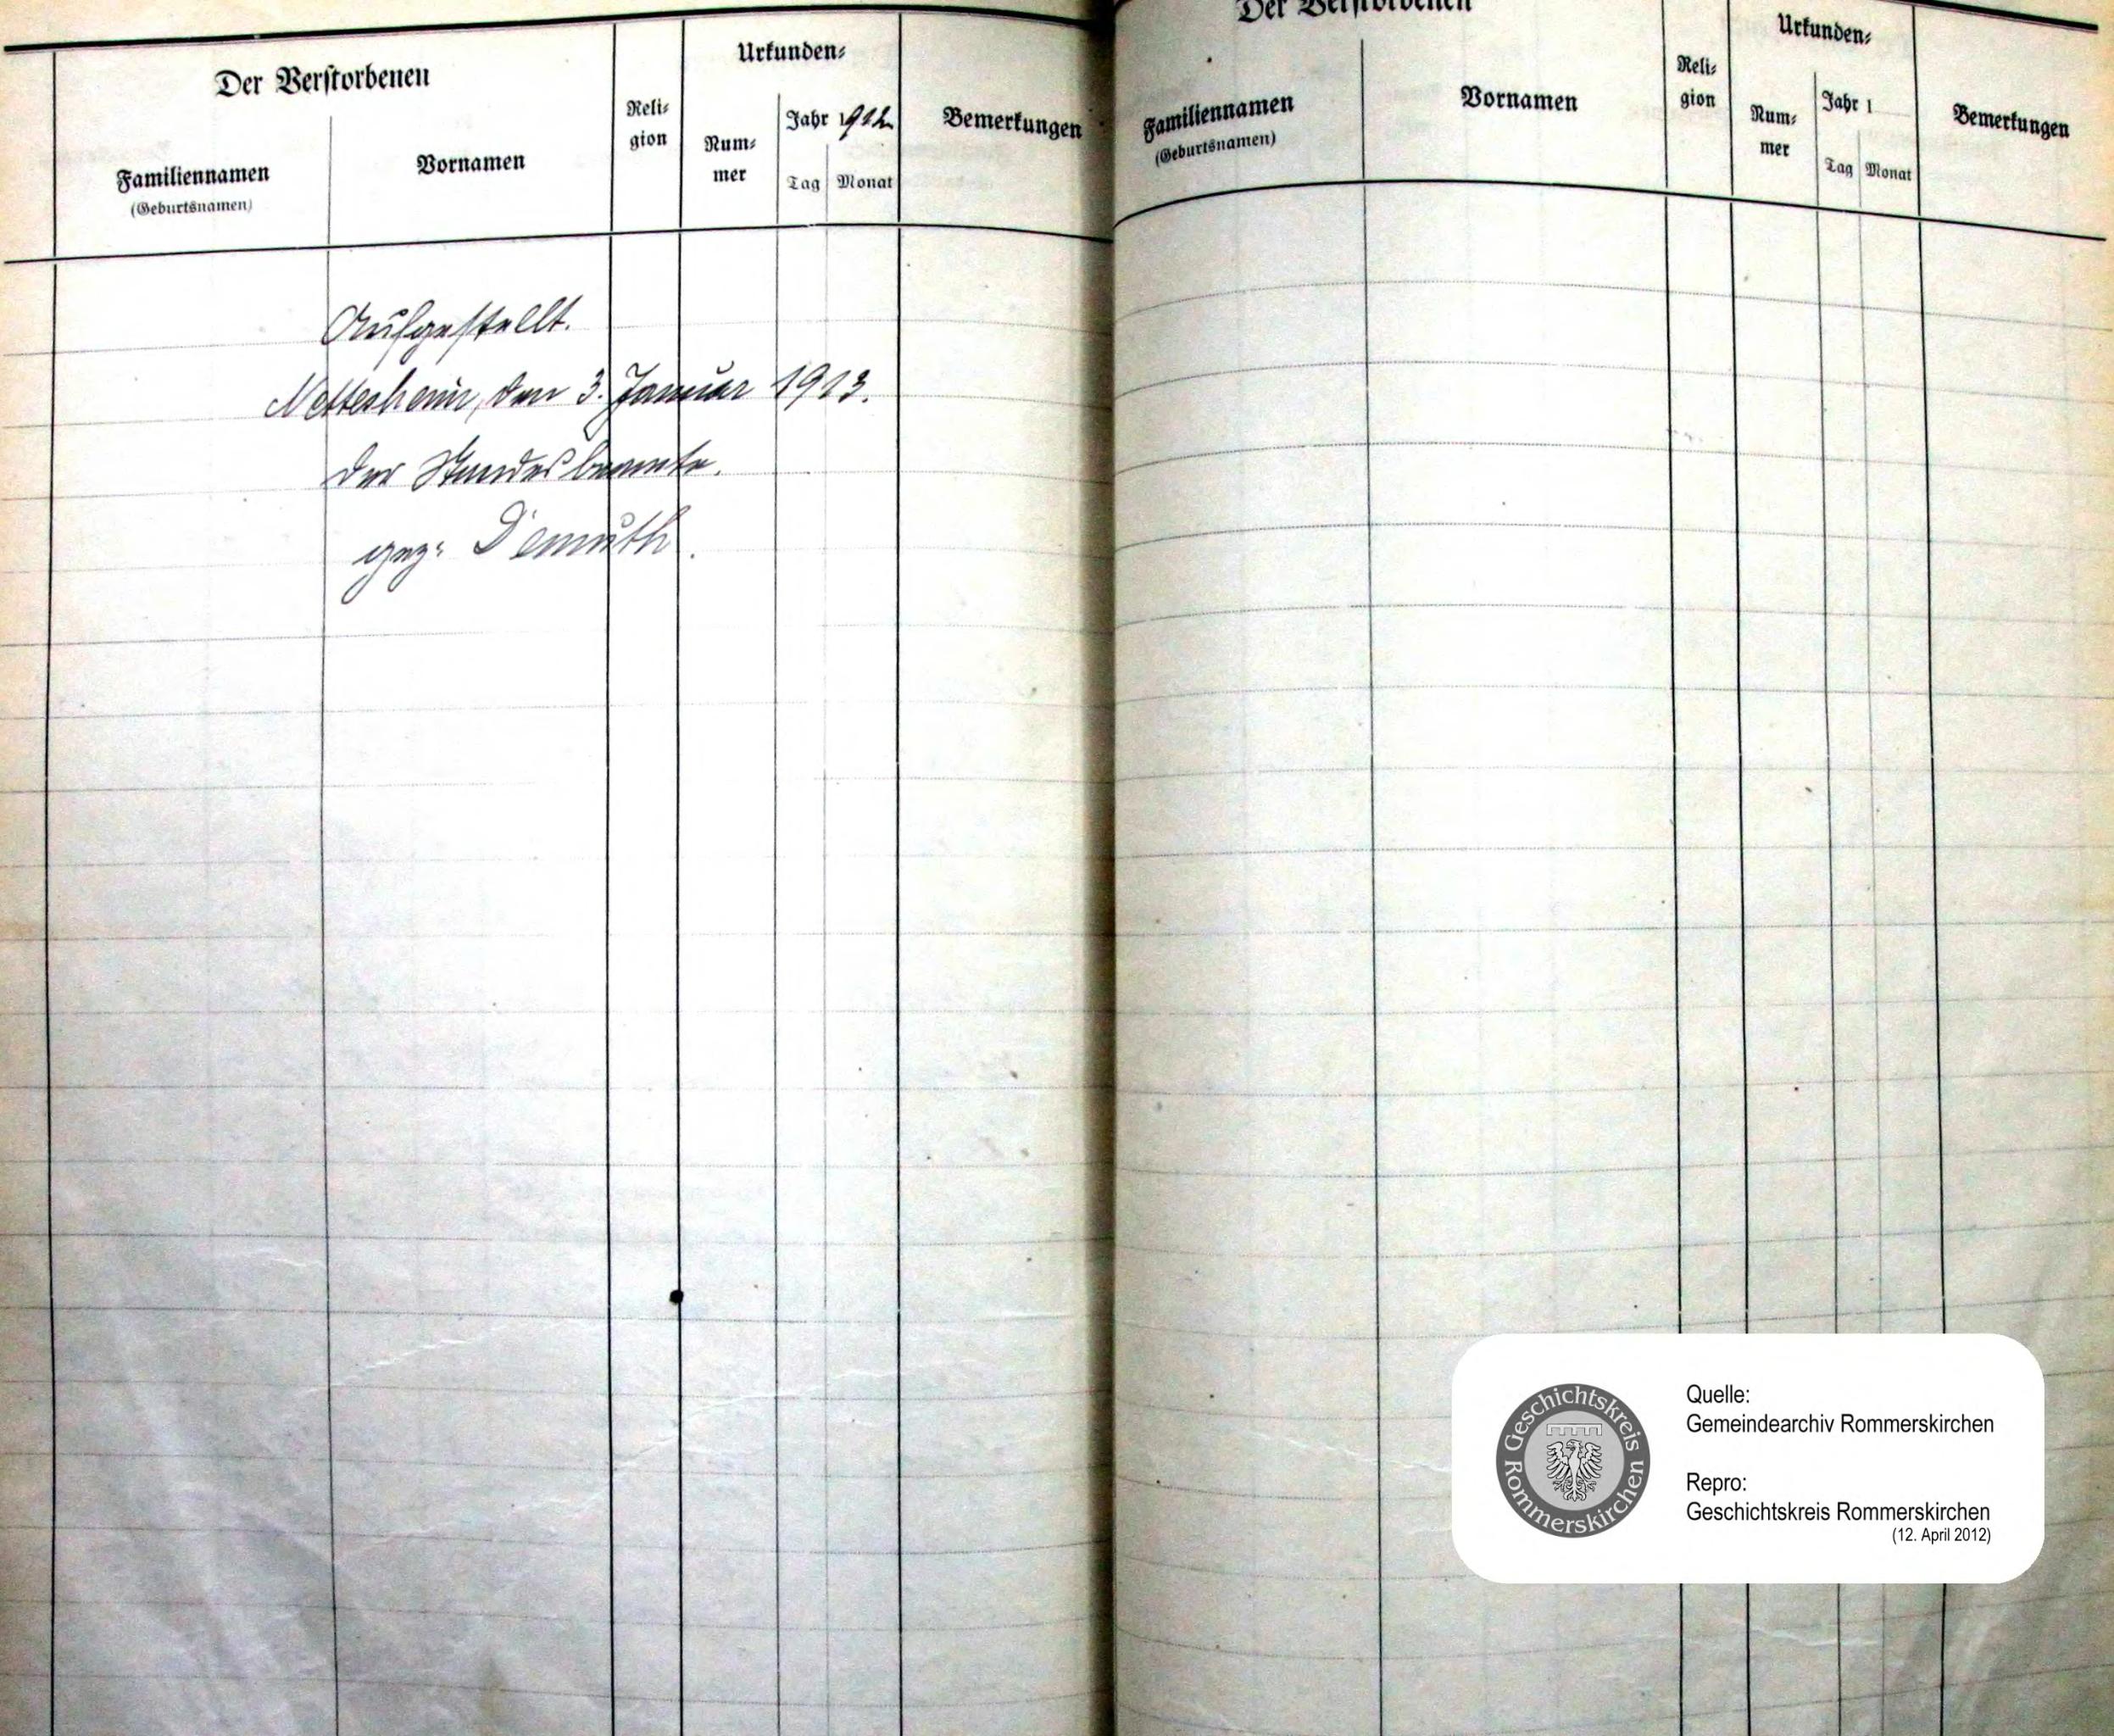 Der Verstorbenen
Urkunden-
Familiennamen
(Geburtsnamen)
Vornamen
Reli-
gion
Num-
mer
Jahr 1912
Tag Monat
Bemerkungen
Aufgestellt.
Nettesheim, den 3. Januar 1913.
Der Standesbeamte.
gez. Demuth.
Der Verstorbenen
Urkunden-
Familiennamen
(Geburtsnamen)
Vornamen
Reli-
gion
Num-
mer
Jahr 1
Tag Monat
Bemerkungen
Geschichtskreis Rommerskirchen
Quelle:
Gemeindearchiv Rommerskirchen
Repro:
Geschichtskreis Rommerskirchen
(12. April 2012)